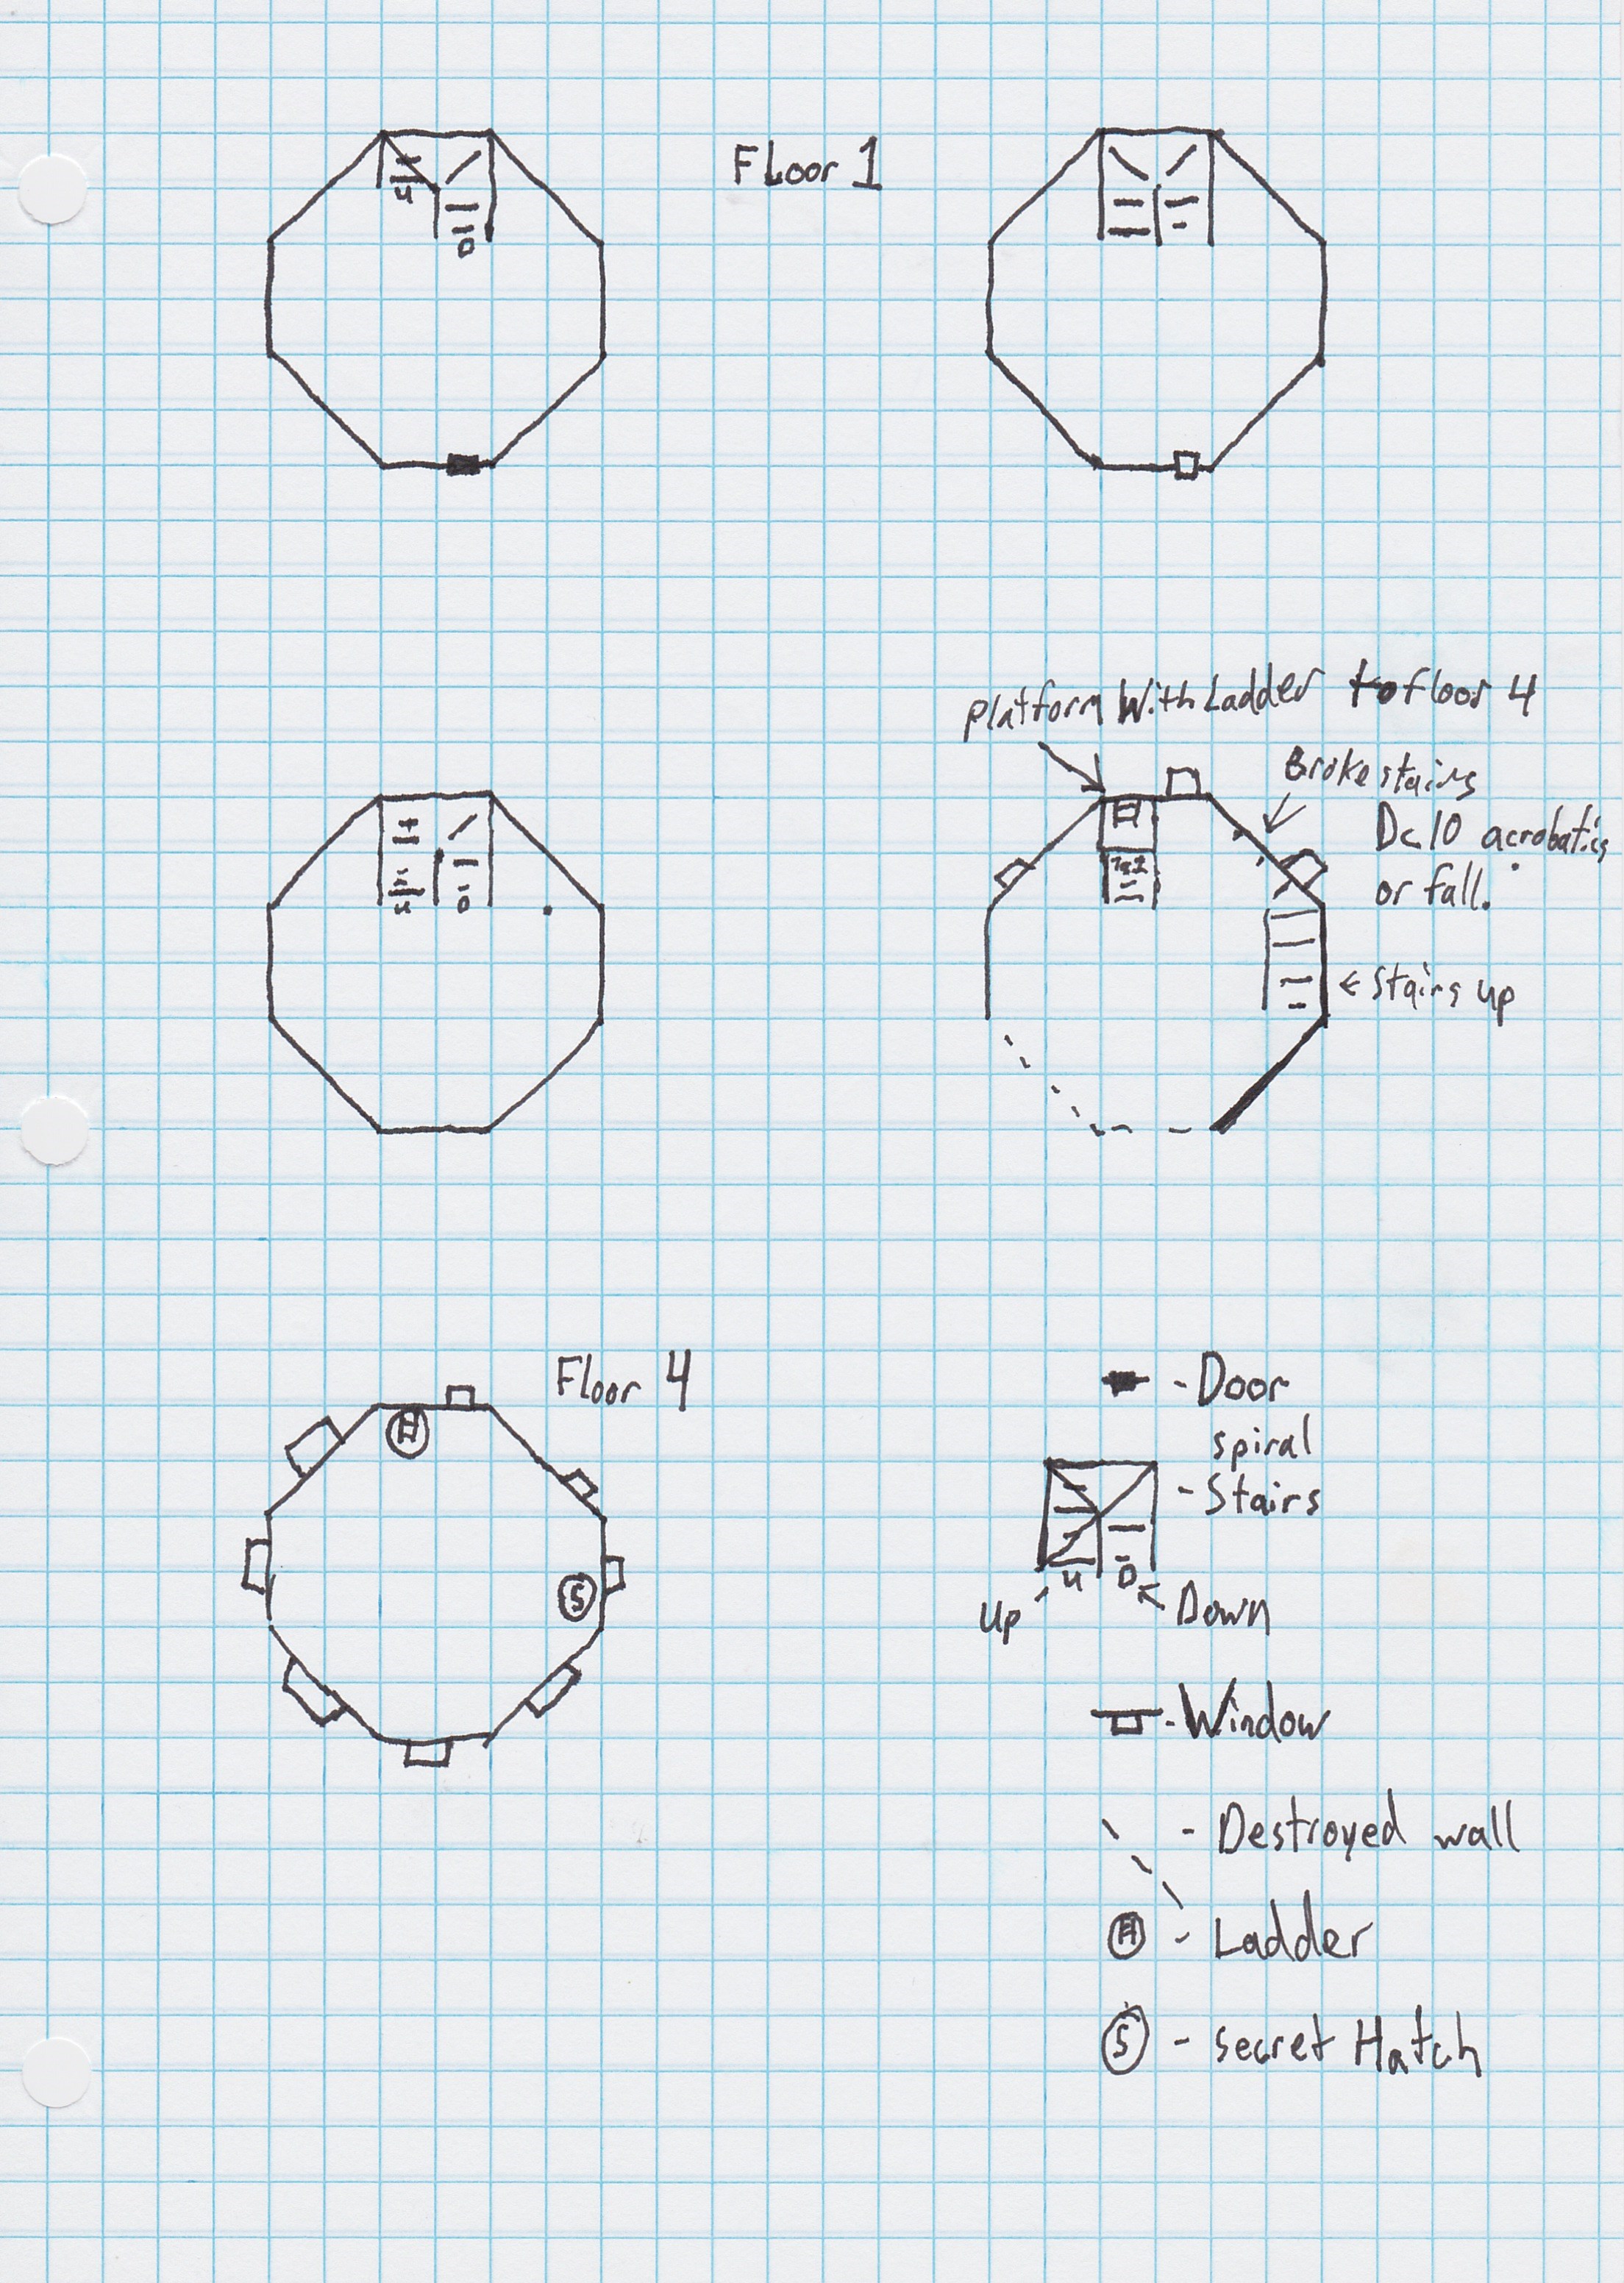 Floor 1
u
D
Platform With Ladder to floor 4
Broke stairs
Dc 10 acrobatics
or fall.
u
D
← Stairs up
Floor 4
H
S
- Door
spiral
- Stairs
u
D
Up
Down
- Window
- Destroyed wall
H - Ladder
S - secret Hatch